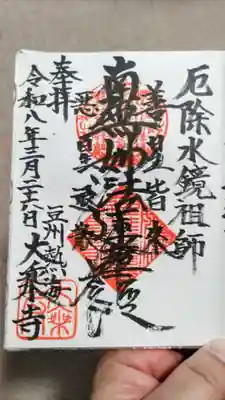 厄除水鏡祖師
善星皆来
南無妙法蓮華経
悪星退散
奉拝
令和八年
豆州熱海
大乗寺